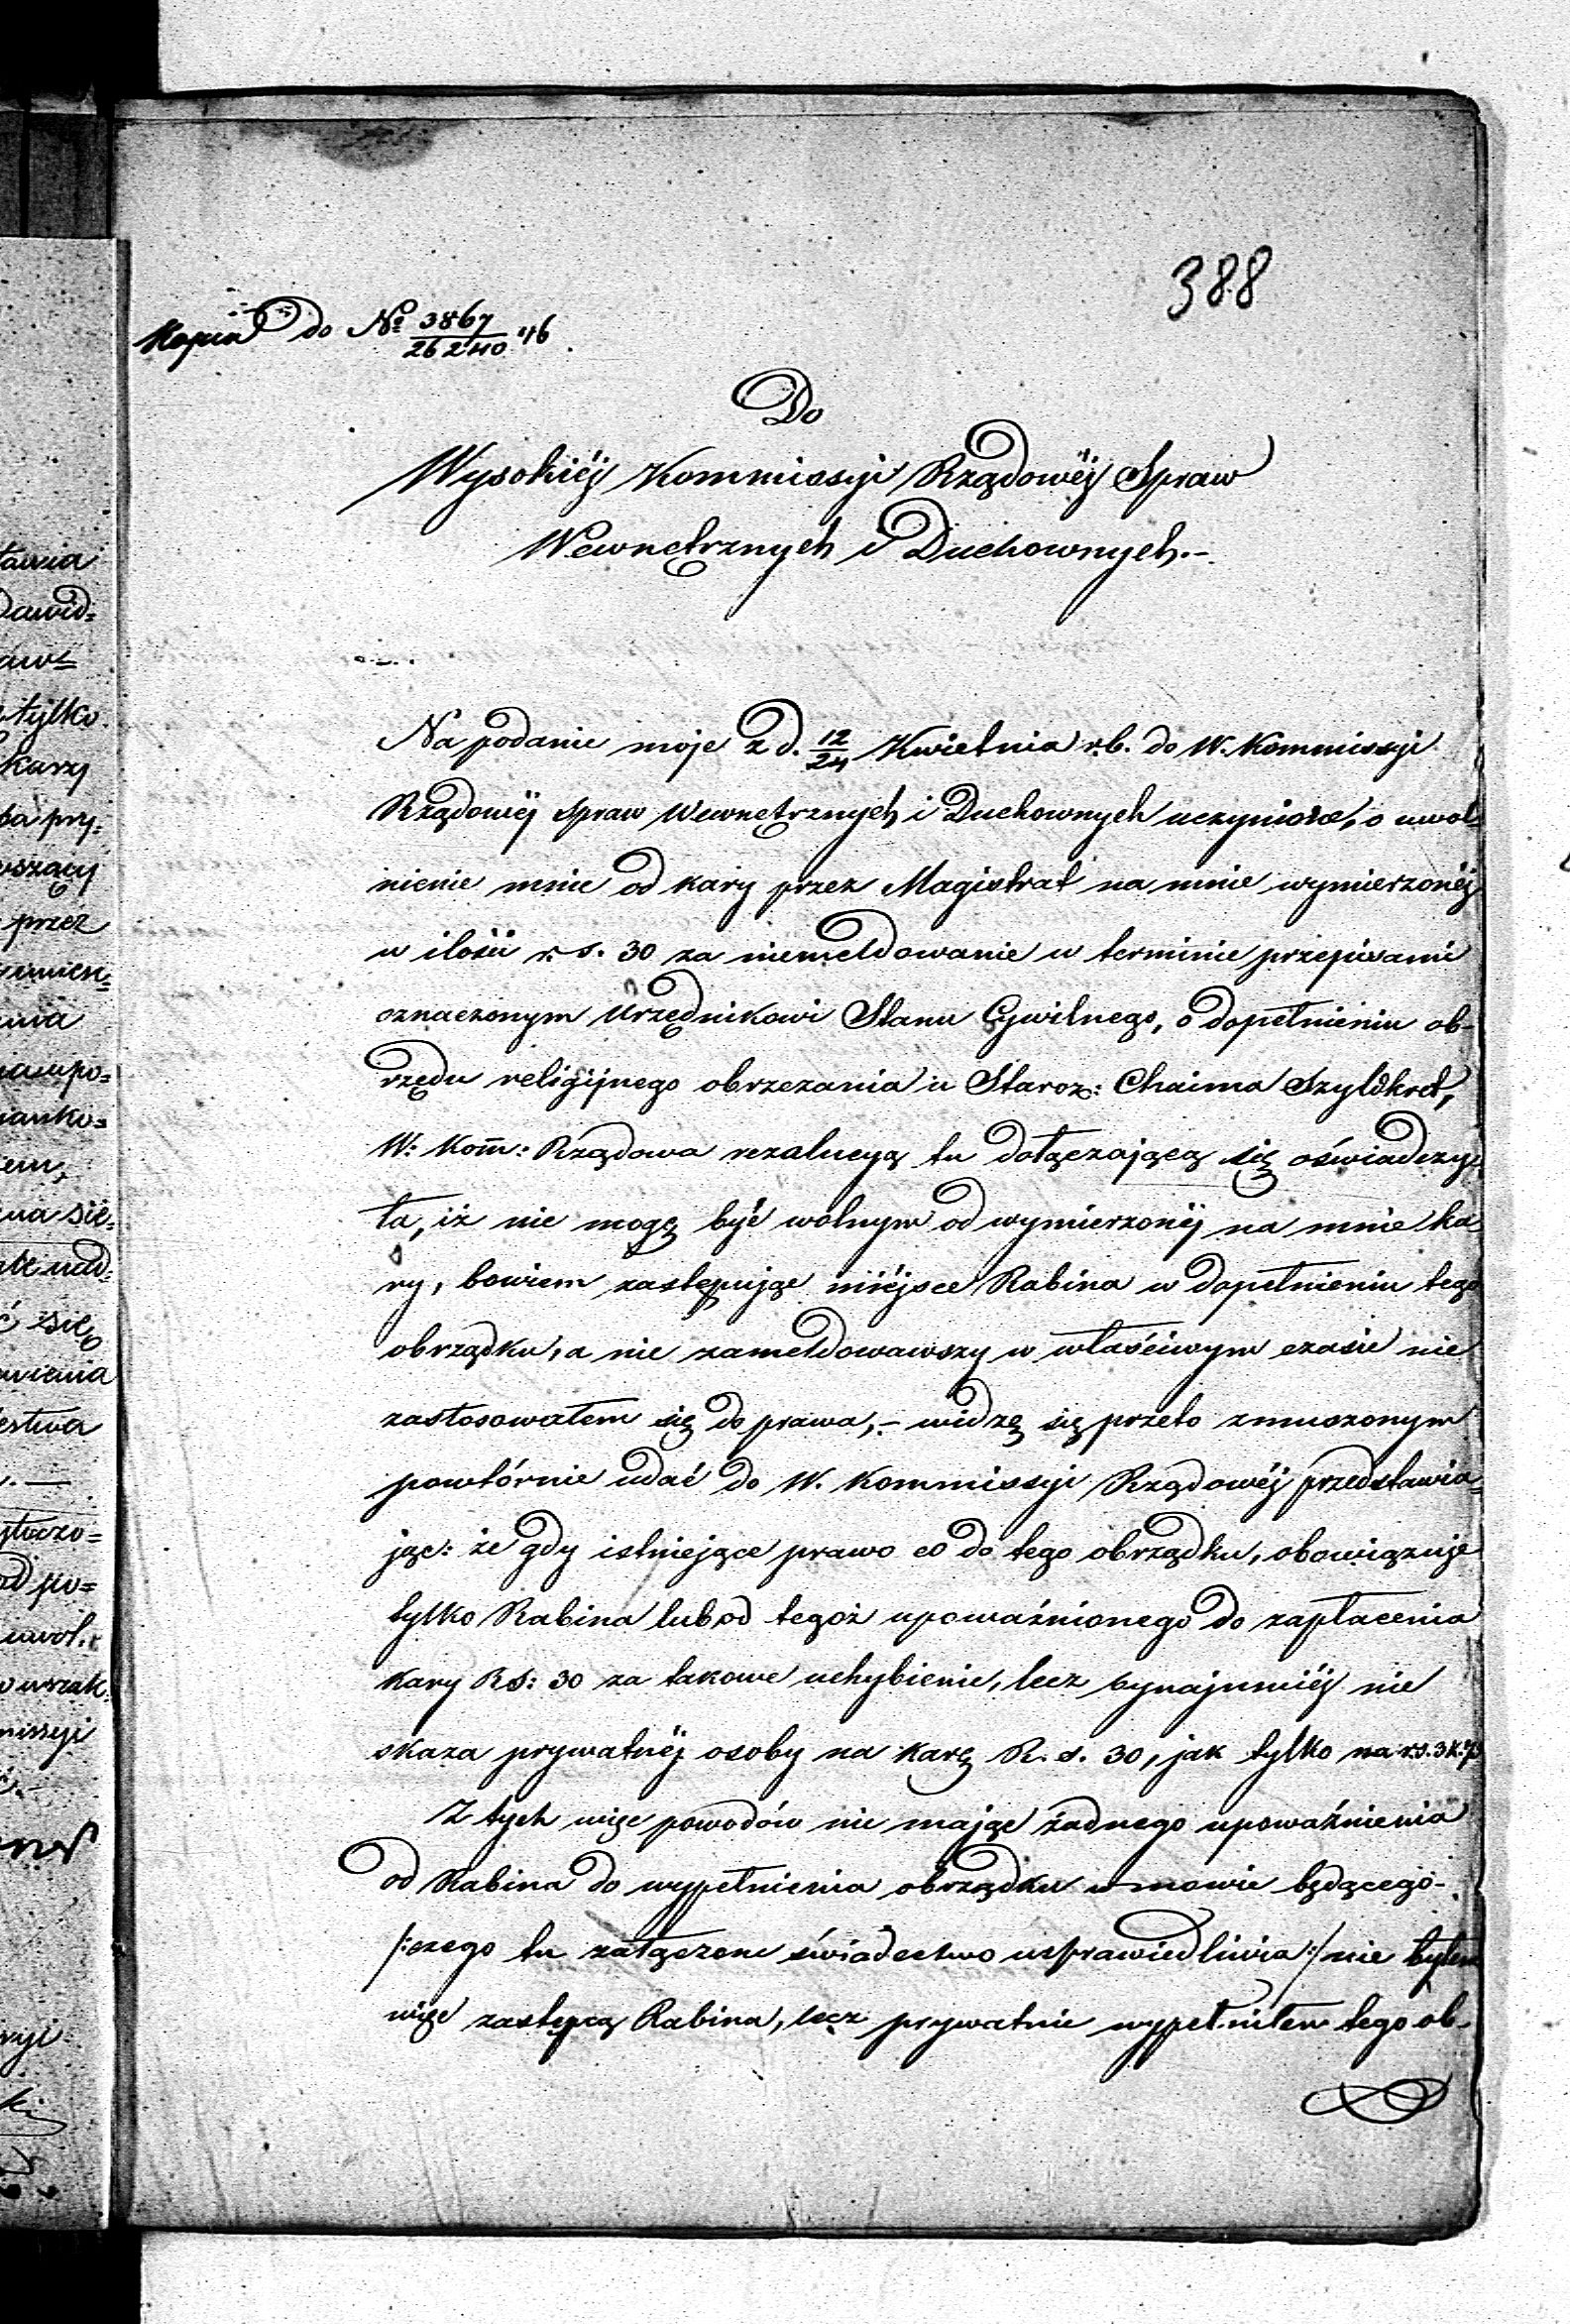 388
Kopia do No 3867/26240 46.
Do
Wysokiéj Kommissyi Rządowéj Spraw
Wewnętrznych i Duchownych.-
Na podanie moje z d. 12/24 Kwietnia r.b. do W. Kommissyi
Rządowéj Spraw Wewnętrznych i Duchownych uczynione, o uwol-
nienie mnie od kary przez Magistrat na mnie wymierzonéj
w ilości r. s. 30 za niemeldowanie w terminie przepisami
oznaczonym Urzędnikowi Stanu Cywilnego, o dopełnieniu ob-
rzędu religijnego obrzezania u Staroz: Chaima Szyldkret,
W: Kom̄: Rządowa rezolucyą tu dołączającą się oświadczy-
ła, iż nie mogę być wolnym od wymierzonéj na mnie ka
ry, bowiem zastępując miéjsce Rabina w dopełnieniu tego
obrządku, a nie zameldowawszy w właściwym czasie nie
zastosowałem się do prawa,- widzę się przeto zmuszonym
powtórnie udać do W. Kommissyi Rządowéj przedstawia=
jąc: że gdy istniejące prawo co do tego obrządku, obowiązuje
tylko Rabina lub od tegoż upoważnionego do zapłacenia
kary RS: 30 za takowe uchybienie, lecz bynajmniéj nie
skaza prywatnéj osoby na karę R. s. 30, jak tylko na r.s. 3 k.
Z tych więc powodów nie mając żadnego upoważnienia
od Rabina do wypełnienia obrządku w mowie będącego-
/:czego tu załączone świadectwo usprawiedliwia:/ nie byłem
więc zastępcą Rabina, lecz prywatnie wypełniłem tego ob-
tawia
Dawid=
tylko
kary
przez
się